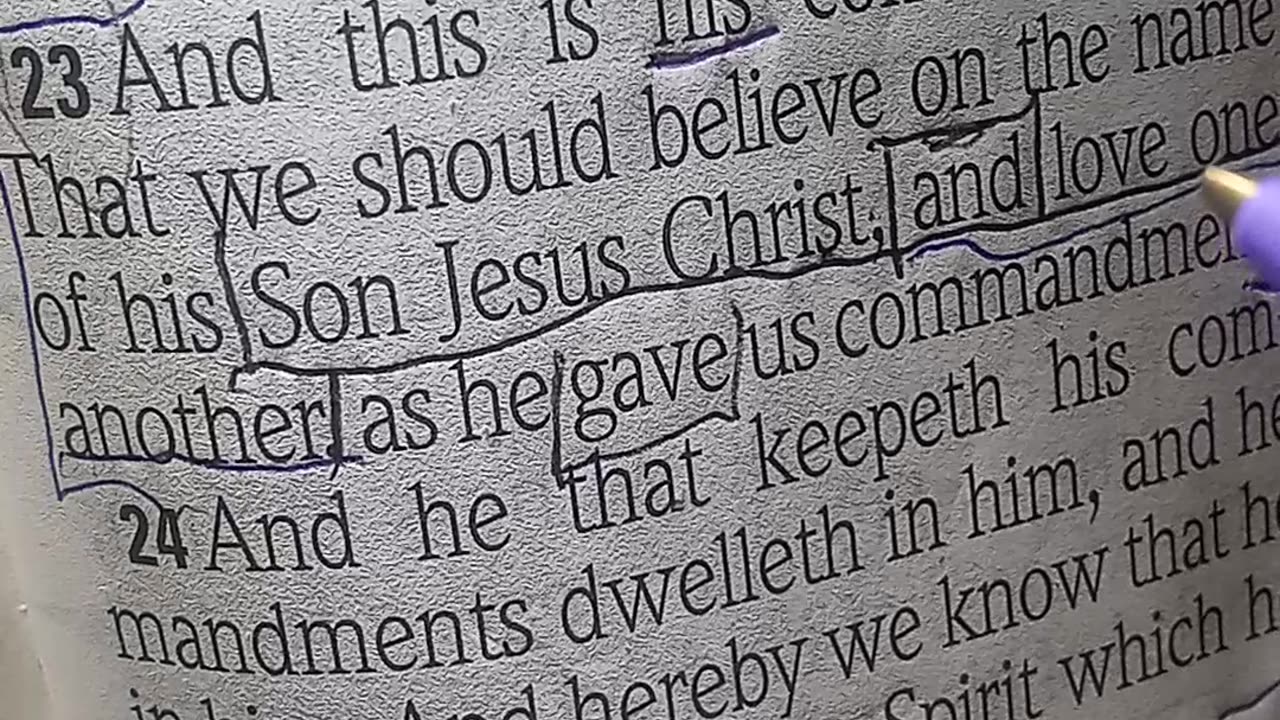 23 And this is his
That we should believe on the name
of his Son Jesus Christ, and love one
another, as he gave us
24 And he that keepeth his com
mandments dwelleth in him, and he
And hereby we know that he
Spirit which h